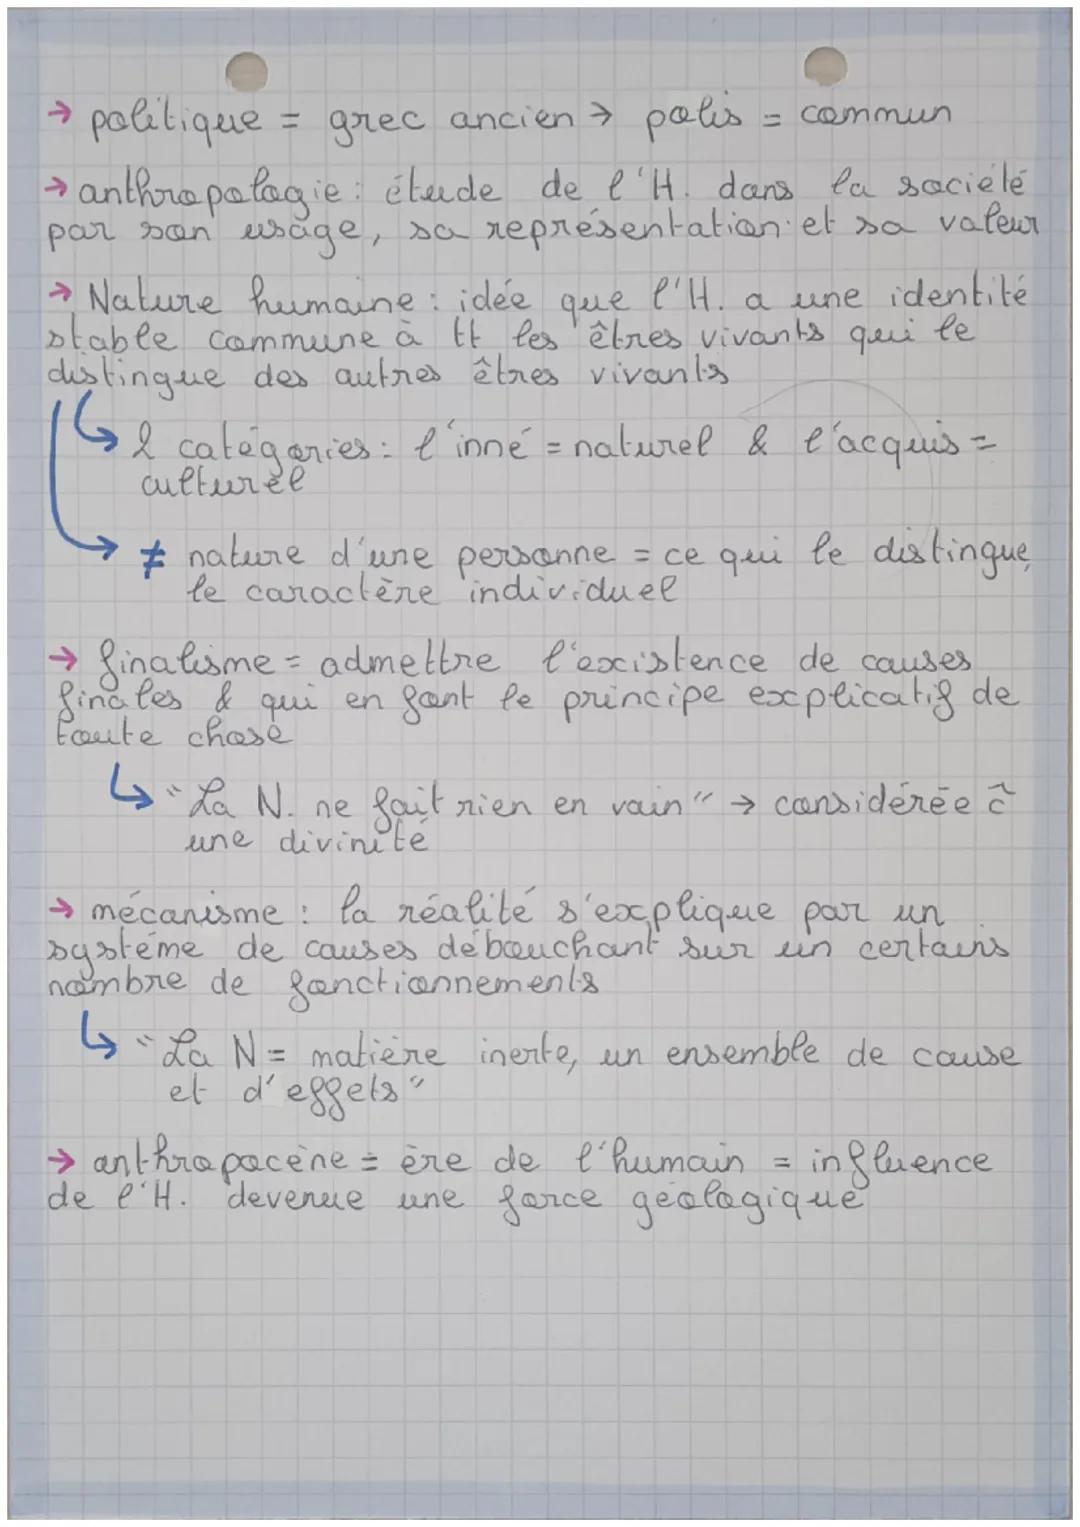 → politique = grec ancien → polis = commun
→ anthropologie : étude de l'H. dans la société
par son usage, sa représentation et sa valeur
→ Nature humaine : idée que l'H. a une identité
stable commune à tt les êtres vivants qui le
distingue des autres êtres vivants
↳ 2 catégories : l'inné = naturel & l'acquis =
culturel
↳ ≠ nature d'une personne = ce qui le distingue,
le caractère individuel
→ finalisme = admettre l'existence de causes
finales & qui en font le principe explicatif de
toute chose
↳ "La N. ne fait rien en vain" → considérée c̃
une divinité
→ mécanisme : la réalité s'explique par un
système de causes débouchant sur un certains
nombre de fonctionnements
↳ "La N = matière inerte, un ensemble de cause
et d'effets"
→ anthropocène = ère de l'humain = influence
de l'H. devenue une force géologique